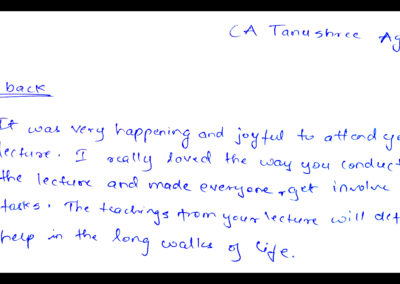 CA Tanushree Ag
back
It was very happening and joyful to attend yo
lecture. I really loved the way you conduct
the lecture and made everyone get involve
tasks. The teachings from your lecture will det
help in the long walks of life.